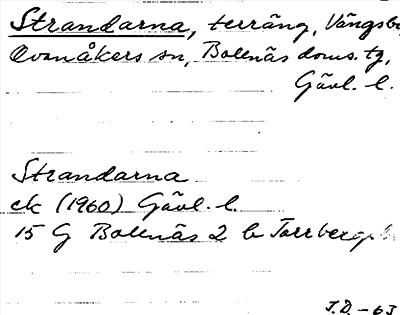 Strandarna, terräng, Vängsbo
Ovanåkers sn, Bollnäs doms. tg,
Gävl. l.
Strandarna
ek (1960) Gävl. l.
15 G Bollnäs 2 b Torrberg
J.D. - 63